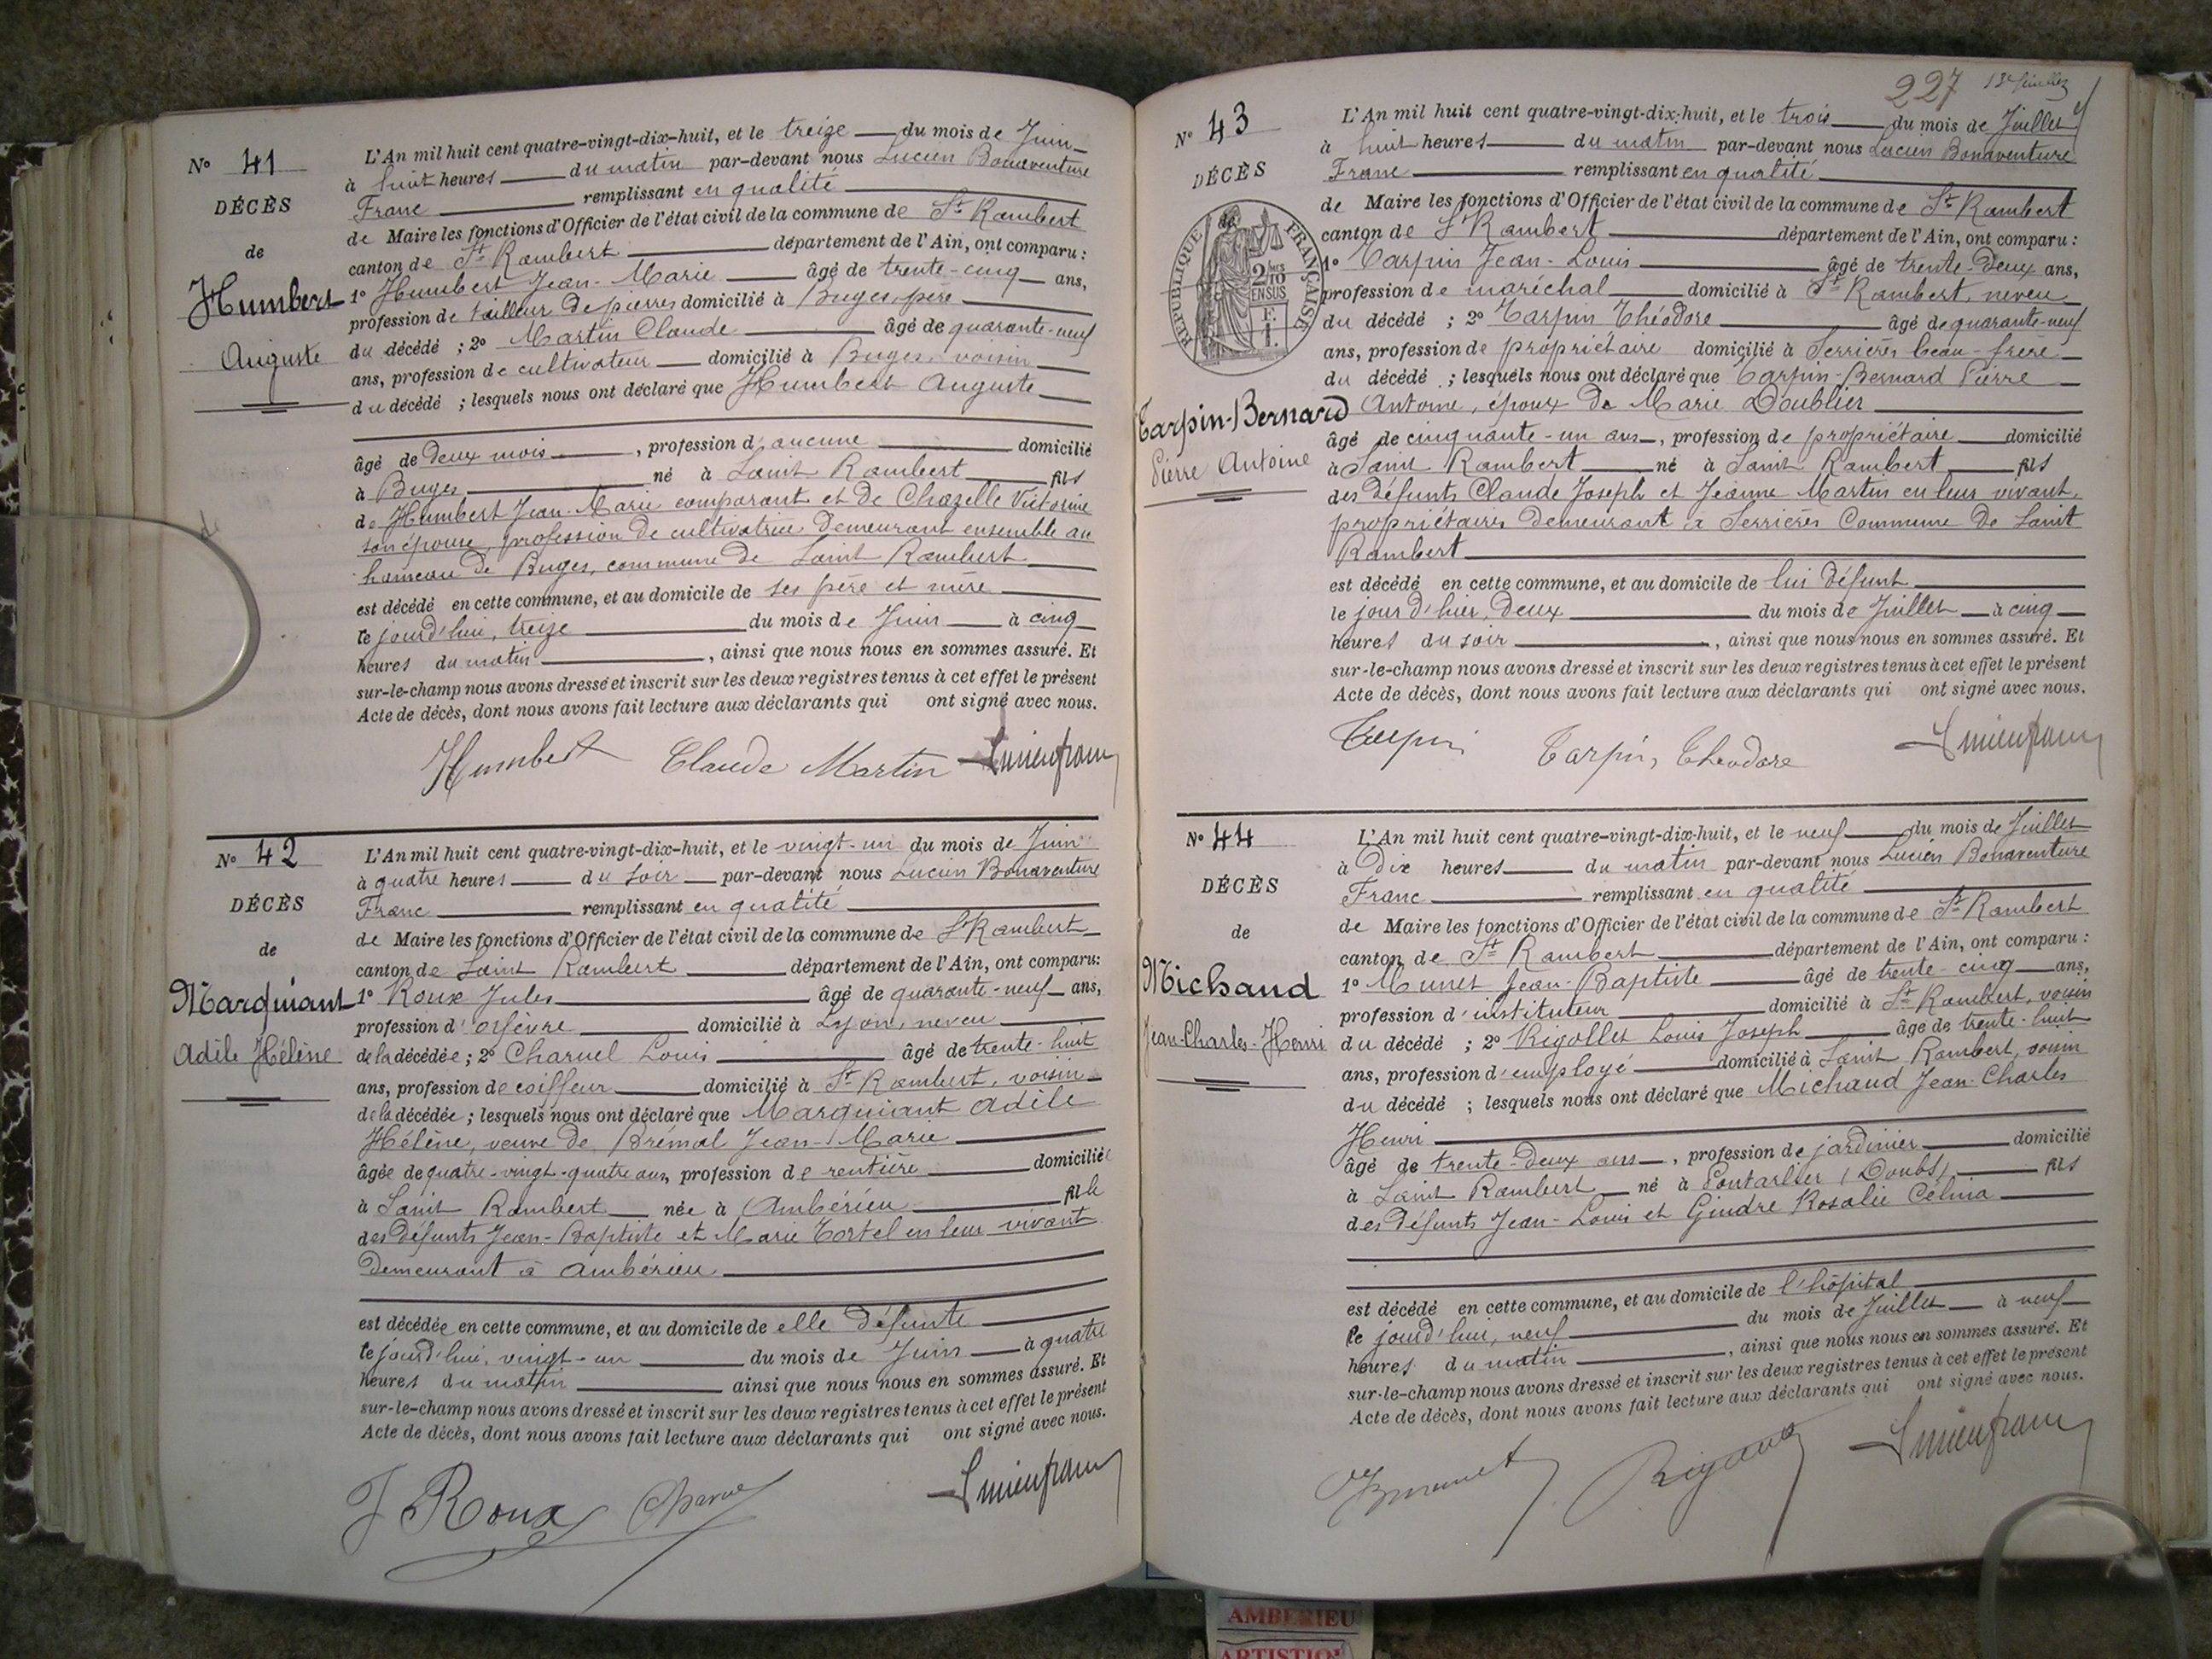 N° 41
DÉCÈS
de
Humbert
Auguste
L'An mil huit cent quatre-vingt-dix-huit, et le treize du mois de Juin
à huit heures du matin par-devant nous Lucien Bonaventure
Franc remplissant en qualité
de Maire les fonctions d'Officier de l'état civil de la commune de St Rambert
canton de St Rambert département de l'Ain, ont comparu :
1° Humbert Jean-Marie âgé de trente-cinq ans,
profession de tailleur de pierres domicilié à Buges, père
du décédé ; 2° Martin Claude âgé de quarante-neuf
ans, profession de cultivateur domicilié à Buges, voisin
du décédé ; lesquels nous ont déclaré que Humbert Auguste
âgé de deux mois , profession d'aucune domicilié
à Buges né à Saint Rambert fils
de Humbert Jean-Marie comparant et de Chazelle Victorine
son épouse, profession de cultivatrice demeurant ensemble au
hameau de Buges, commune de Saint Rambert
est décédé en cette commune, et au domicile de ses père et mère
le jourd'hui, treize du mois de Juin à cinq
heures du matin , ainsi que nous nous en sommes assuré. Et
sur-le-champ nous avons dressé et inscrit sur les deux registres tenus à cet effet le présent
Acte de décès, dont nous avons fait lecture aux déclarants qui ont signé avec nous.
Humbert Claude Martin Lucien franc
N° 42
DÉCÈS
de
Marquiant
Adèle Hélène
L'An mil huit cent quatre-vingt-dix-huit, et le vingt-un du mois de Juin
à quatre heures du soir par-devant nous Lucien Bonaventure
Franc remplissant en qualité
de Maire les fonctions d'Officier de l'état civil de la commune de St Rambert
canton de Saint Rambert département de l'Ain, ont comparu:
1° Roux Jules âgé de quarante-neuf ans,
profession d'orfèvre domicilié à Lyon, neveu
de la décédée ; 2° Charvel Louis âgé de trente-huit
ans, profession de coiffeur domicilié à St Rambert, voisin
de la décédée ; lesquels nous ont déclaré que Marquiant Adèle
Hélène, veuve de Brémal Jean-Marie
âgée de quatre-vingt-quatre ans, profession de rentière domiciliée
à Saint Rambert née à Ambérieu fille
des défunts Jean-Baptiste et Marie Tortel en leur vivant
demeurant à Ambérieu
est décédée en cette commune, et au domicile de elle défunte
le jourd'hui, vingt-un du mois de Juin à quatre
heures du matin ainsi que nous nous en sommes assuré. Et
sur-le-champ nous avons dressé et inscrit sur les deux registres tenus à cet effet le présent
Acte de décès, dont nous avons fait lecture aux déclarants qui ont signé avec nous.
J Roux Charvel Lucien franc
227
N° 43
DÉCÈS
de
RÉPUBLIQUE FRANÇAISE
2/10
EN SUS
F.
1.
Tarpin-Bernard
Pierre Antoine
L'An mil huit cent quatre-vingt-dix-huit, et le trois du mois de Juillet
à huit heures du matin par-devant nous Lucien Bonaventure
Franc remplissant en qualité
de Maire les fonctions d'Officier de l'état civil de la commune de St Rambert
canton de St Rambert département de l'Ain, ont comparu :
1° Tarpin Jean-Louis âgé de trente-deux ans,
profession de maréchal domicilié à St Rambert, neveu
du décédé ; 2° Tarpin Théodore âgé de quarante-neuf
ans, profession de propriétaire domicilié à Serrières beau-frère
du décédé ; lesquels nous ont déclaré que Tarpin-Bernard Pierre
Antoine, époux de Marie Doublier
âgé de cinquante-un ans , profession de propriétaire domicilié
à Saint Rambert né à Saint Rambert fils
des défunts Claude Joseph et Jeanne Martin en leur vivant,
propriétaires demeurant à Serrières Commune de Saint
Rambert
est décédé en cette commune, et au domicile de lui défunt
le jour d'hier, deux du mois de Juillet à cinq
heures du soir , ainsi que nous nous en sommes assuré. Et
sur-le-champ nous avons dressé et inscrit sur les deux registres tenus à cet effet le présent
Acte de décès, dont nous avons fait lecture aux déclarants qui ont signé avec nous.
Tarpin Tarpin, Théodore Lucien franc
N° 44
DÉCÈS
de
Michaud
Jean-Charles-Henri
L'An mil huit cent quatre-vingt-dix-huit, et le neuf du mois de Juillet
à dix heures du matin par-devant nous Lucien Bonaventure
Franc remplissant en qualité
de Maire les fonctions d'Officier de l'état civil de la commune de St Rambert
canton de St Rambert département de l'Ain, ont comparu :
1° Munet Jean-Baptiste âgé de trente-cinq ans,
profession d'instituteur domicilié à St Rambert, voisin
du décédé ; 2° Rigollet Louis Joseph âgé de trente-huit
ans, profession d'employé domicilié à Saint Rambert, voisin
du décédé ; lesquels nous ont déclaré que Michaud Jean-Charles
Henri
âgé de trente-deux ans , profession de jardinier domicilié
à Saint Rambert né à Pontarlier (Doubs) fils
des défunts Jean-Louis et Gindre Rosalie Célinia
est décédé en cette commune, et au domicile de l'hôpital
le jourd'hui, neuf du mois de Juillet à neuf
heures du matin , ainsi que nous nous en sommes assuré. Et
sur-le-champ nous avons dressé et inscrit sur les deux registres tenus à cet effet le présent
Acte de décès, dont nous avons fait lecture aux déclarants qui ont signé avec nous.
Lucien franc
AMBERIEU